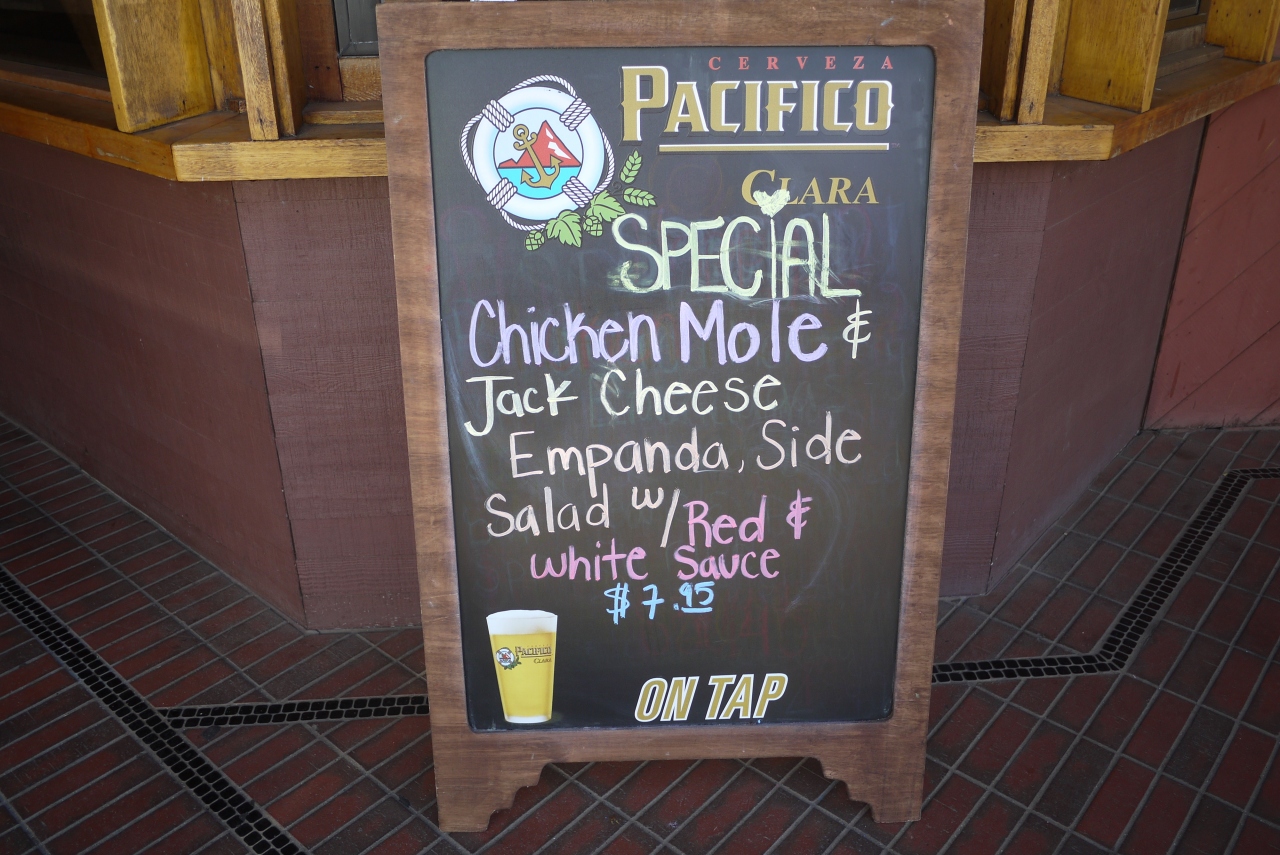 CERVEZA
PACIFICO
CLARA
SPECIAL
Chicken Mole &
Jack Cheese
Empanda, Side
Salad w/ Red &
white Sauce
$7.95
PACIFICO
CLARA
ON TAP